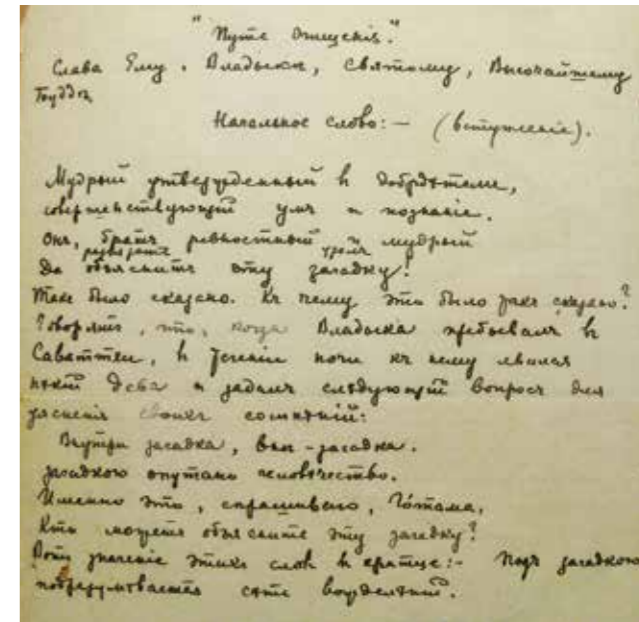 "Путь Очищенія."
Слава Ему, Владыкѣ, Святому, Высочайшему
Буддѣ
Начальное слово:— (вступленіе).
Мудрый утвержденный въ добродѣтели,
совершенствующій умъ и познаніе.
Онъ, братъ ревностный и мудрый
Да объяснитъ эту загадку!
Такъ было сказано. Къ чему это было такъ сказано?
Говорятъ, что, когда Владыка пребывалъ въ
Саваттхи, въ теченіи ночи къ нему явился
нѣкій Дева и задалъ слѣдующій вопросъ для
уясненія своихъ сомнѣній:
Внутри загадка, внѣ-загадка.
загадкою опутано человѣчество.
Именно это, спрашиваю, Го́тама,
Кто можетъ объяснить эту загадку?
Вотъ значеніе этихъ словъ въ кратцѣ:- Подъ загадкою
подразумѣвается сѣть вожделѣній.